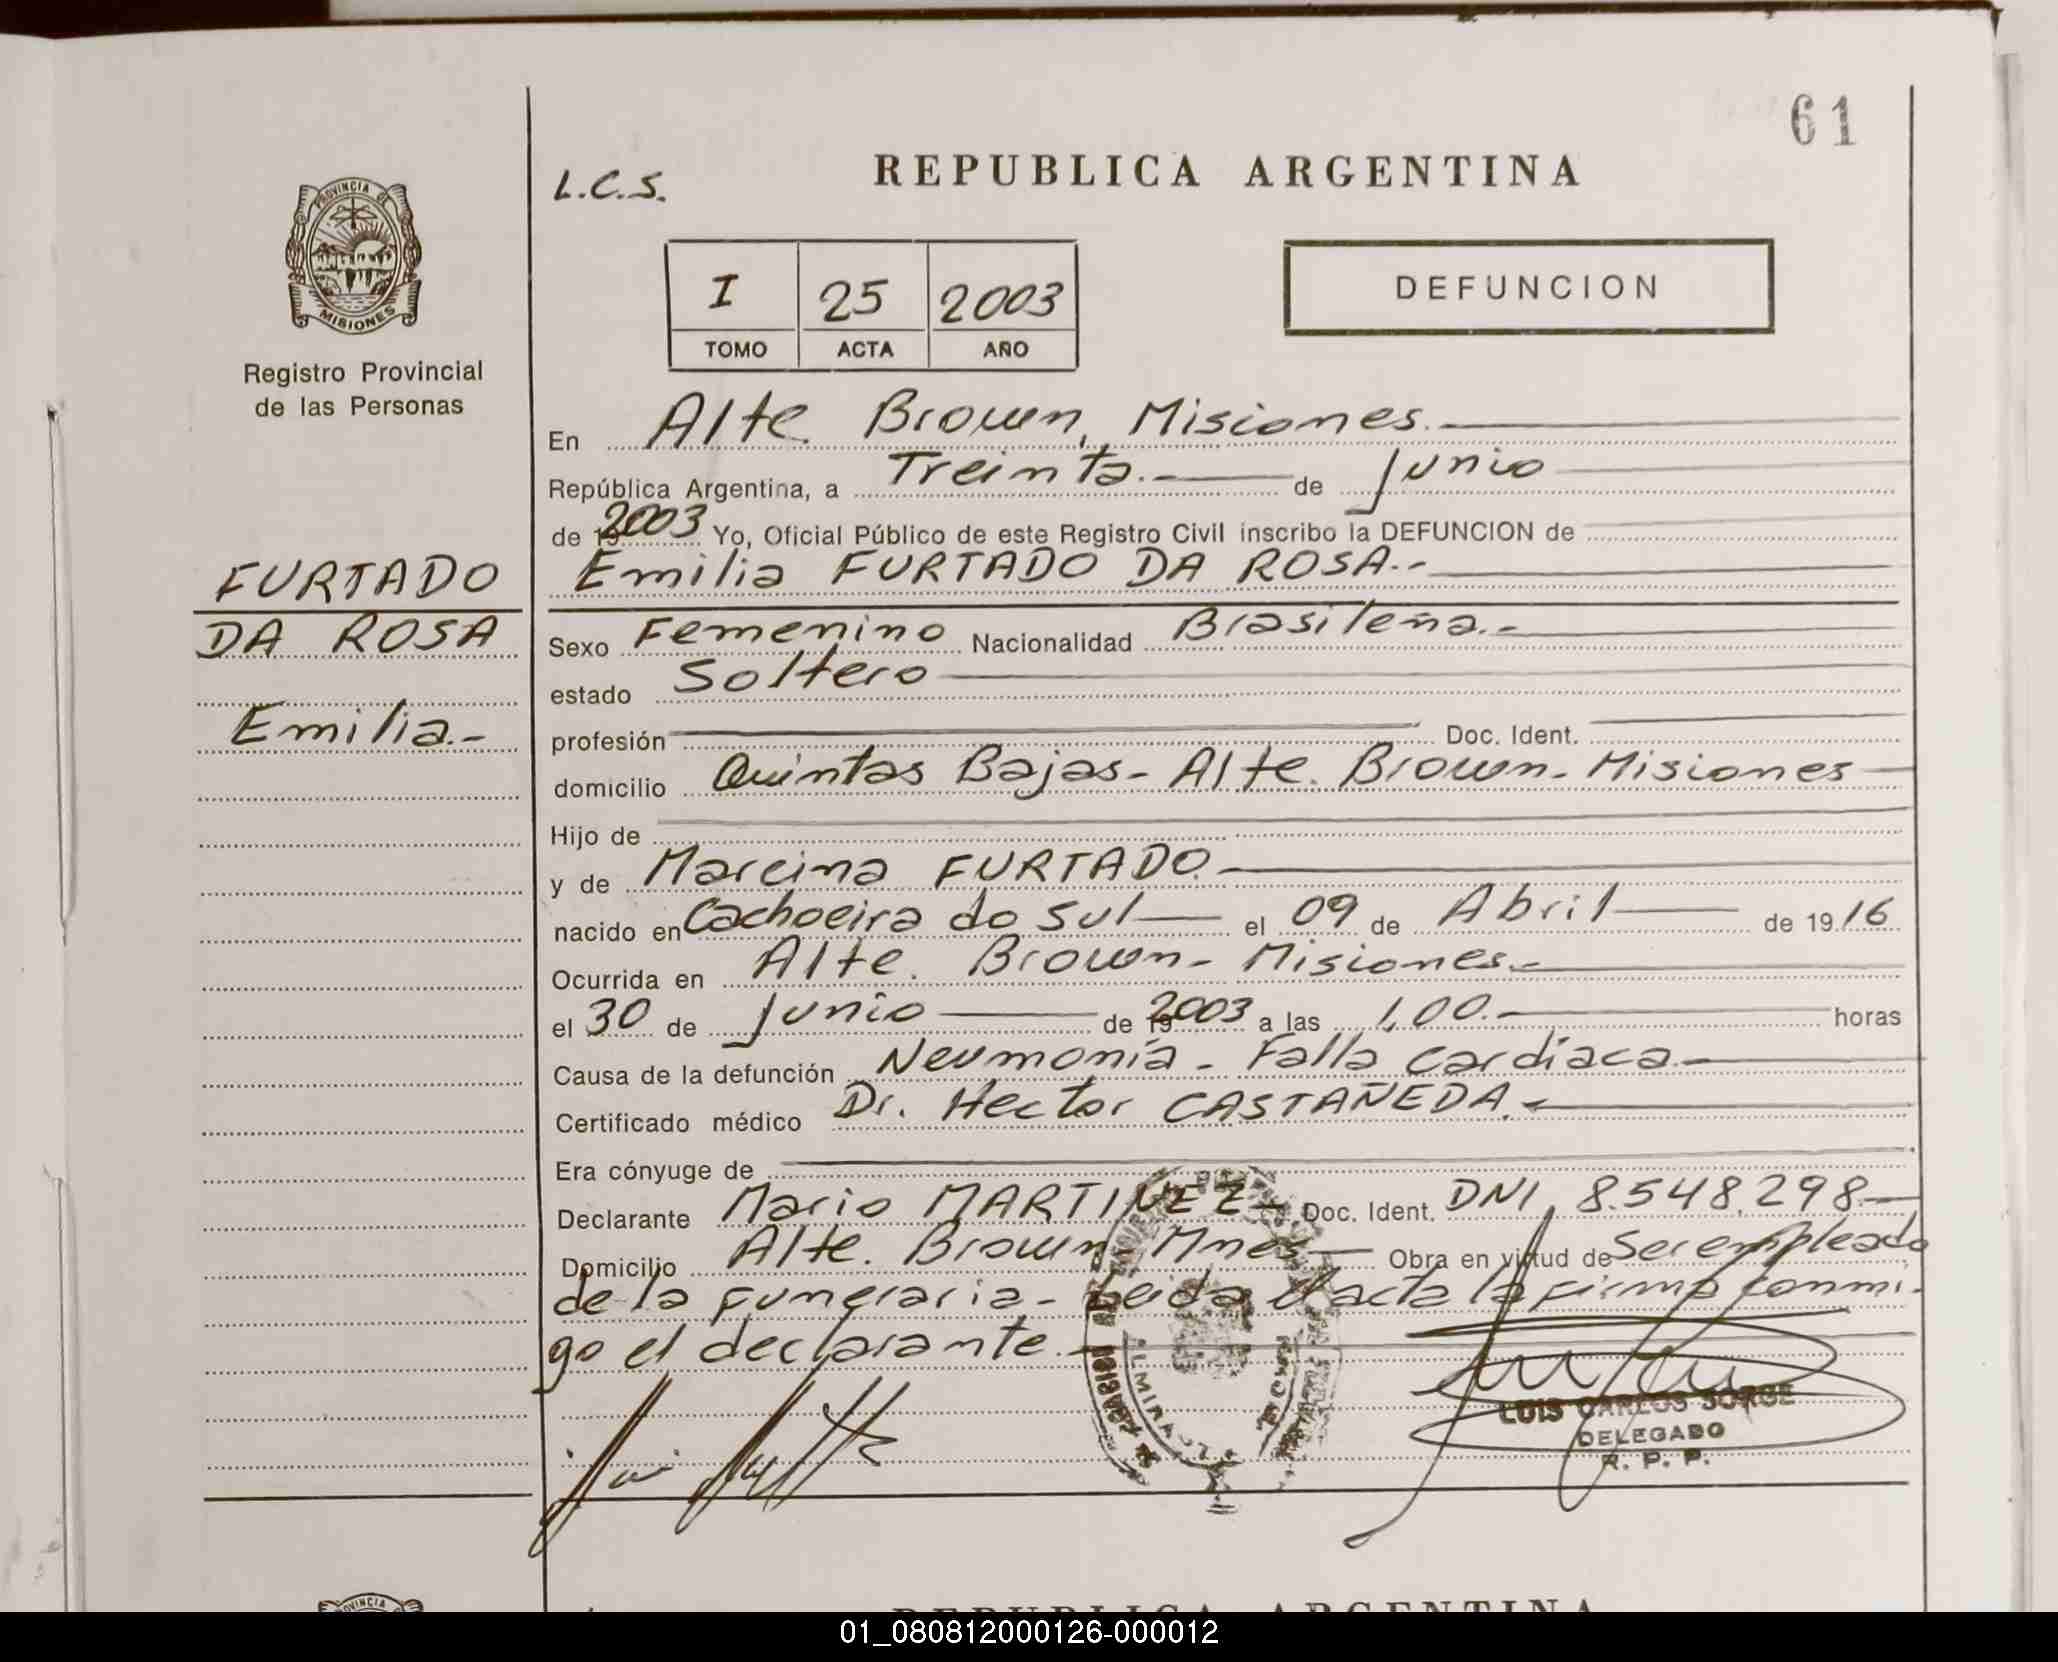 61
REPUBLICA ARGENTINA
L.C.S.
PROVINCIA DE
MISIONES
I 25 2003
TOMO ACTA AÑO
DEFUNCION
Registro Provincial
de las Personas
En Alte. Brown, Misiones.
República Argentina, a Treinta.- de Junio
de 19 2003 Yo, Oficial Público de este Registro Civil inscribo la DEFUNCION de
FURTADO
Emilia FURTADO DA ROSA.-
DA ROSA
Sexo Femenino Nacionalidad Brasileña.-
estado Soltero
Emilia.-
profesión Doc. Ident.
domicilio Quintas Bajas- Alte. Brown- Misiones
Hijo de
y de Marcina FURTADO.
nacido en Cachoeira do Sul el 09 de Abril de 1916
Ocurrida en Alte. Brown- Misiones.-
el 30 de Junio de 19 2003 a las 1,00.- horas
Causa de la defunción Neumonía - Falla cardíaca.-
Certificado médico Dr. Hector CASTAÑEDA.-
Era cónyuge de
Declarante Mario MARTINEZ.- Doc. Ident. DNI 8.548.298.-
Domicilio Alte. Brown Mnes Obra en virtud de Ser empleado
de la funeraria- Leida el acta la firma conmi-
go el declarante.
LUIS CARLOS JORGE
DELEGADO
R. P. P.
REPUBLICA ARGENTINA
01_080812000126-000012